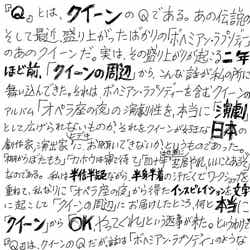 『Q』とは、クイーンのQである。あの伝説
そして最近盛り上がったばかりの「ボヘミアン・ラプソディ
のあのクイーンだ。実は、その盛り上がりが起こる二年
ほど前、「クイーンの周辺」から、こんな話が私の所に
舞い込んできた。それは「ボヘミアン・ラプソディー」を含むクイーンの
アルバム「オペラ座の夜」の演劇性を、本当に「演劇」
として広げられないものか、それをクイーンが好きな日本の
劇作家、演出家にお願いできないか、というものであった。
である。私は半信半疑ながら、半身半着の汗だくでワークショップを
重ねて、私なりに「オペラ座の夜」から得たインスピレイションを文字
に起こして「クイーンの周辺」にお届けしたところ、何と本当に
クイーンから「OK、やってくれ」という返事が来た。という
『Q』は、クイーンのQだが、話は「ボヘミアン・ラプソディ」の